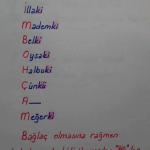 İllaki
Mademki
Belki
Oysaki
Halbuki
Çünkü
A—
Meğerki
Bağlaç olmasına rağmen